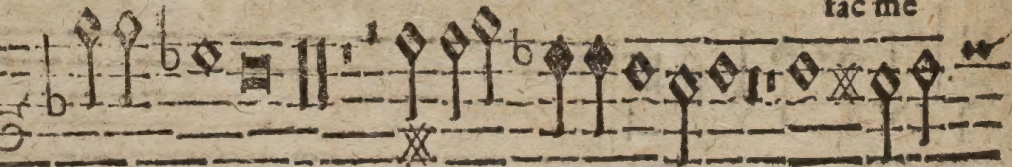 fac me